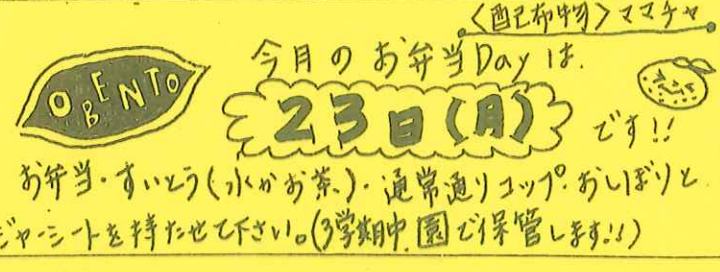 <配布物>ママチャ
OBENTO
今月のお弁当Dayは.
23日(月)
です!!
お弁当・すいとう(水かお茶)・通常通りコップ・おしぼりと
ジャーシートを持たせて下さい。(3学期中園で保管します!!)